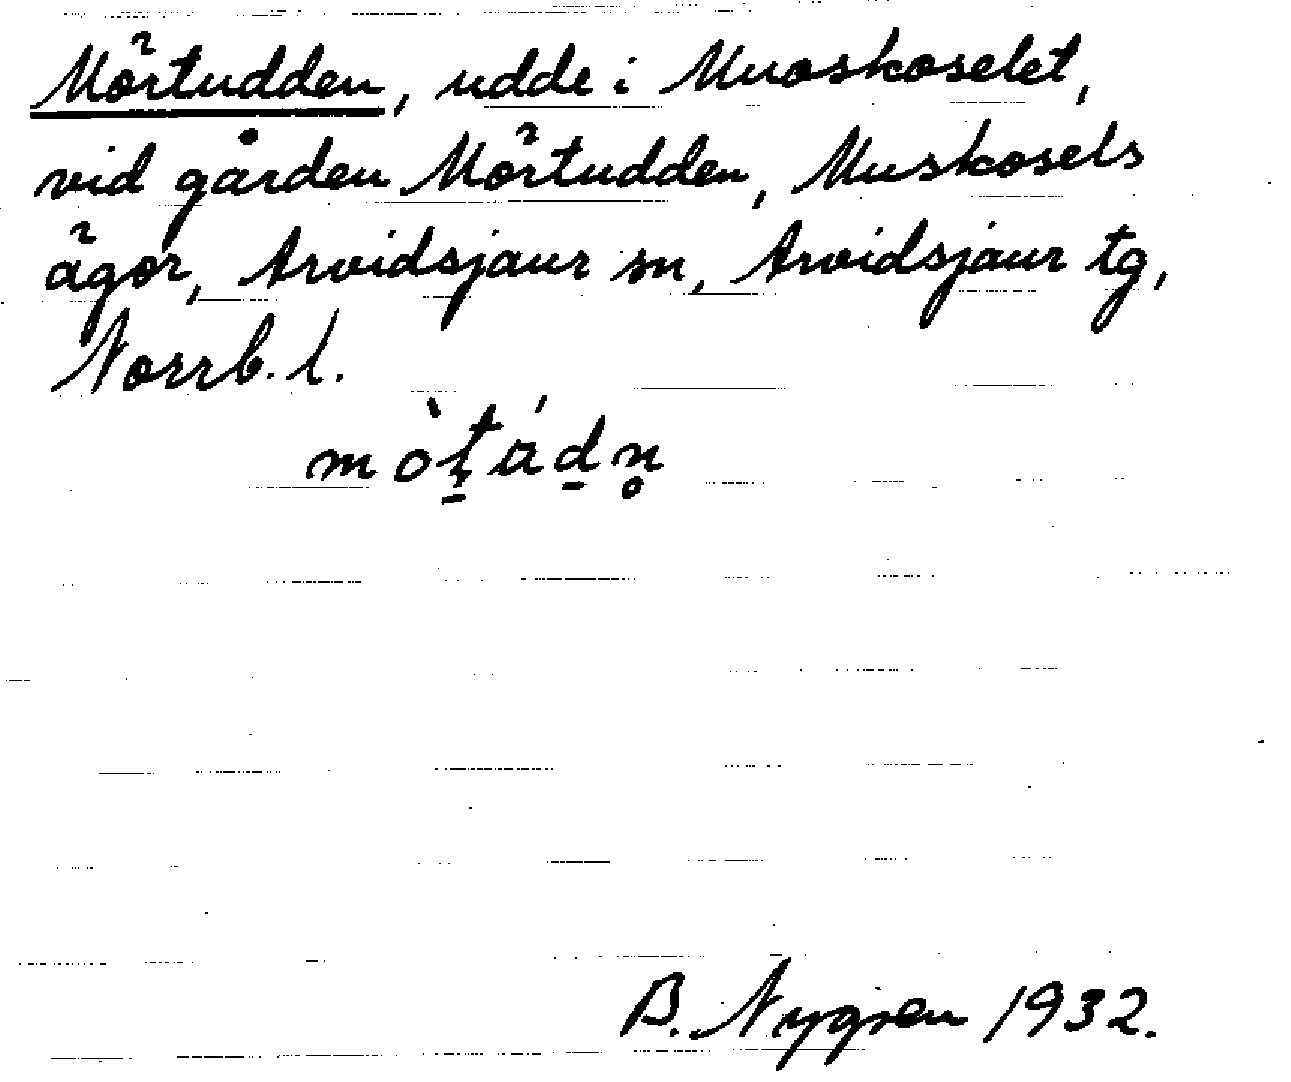 Mörtudden, udde i Muoskoselet,
vid gården Mörtudden, Muskosels
ägor, Arvidsjaur sn, Arvidsjaur tg,
Norrb. l.
B. Nygren 1932.